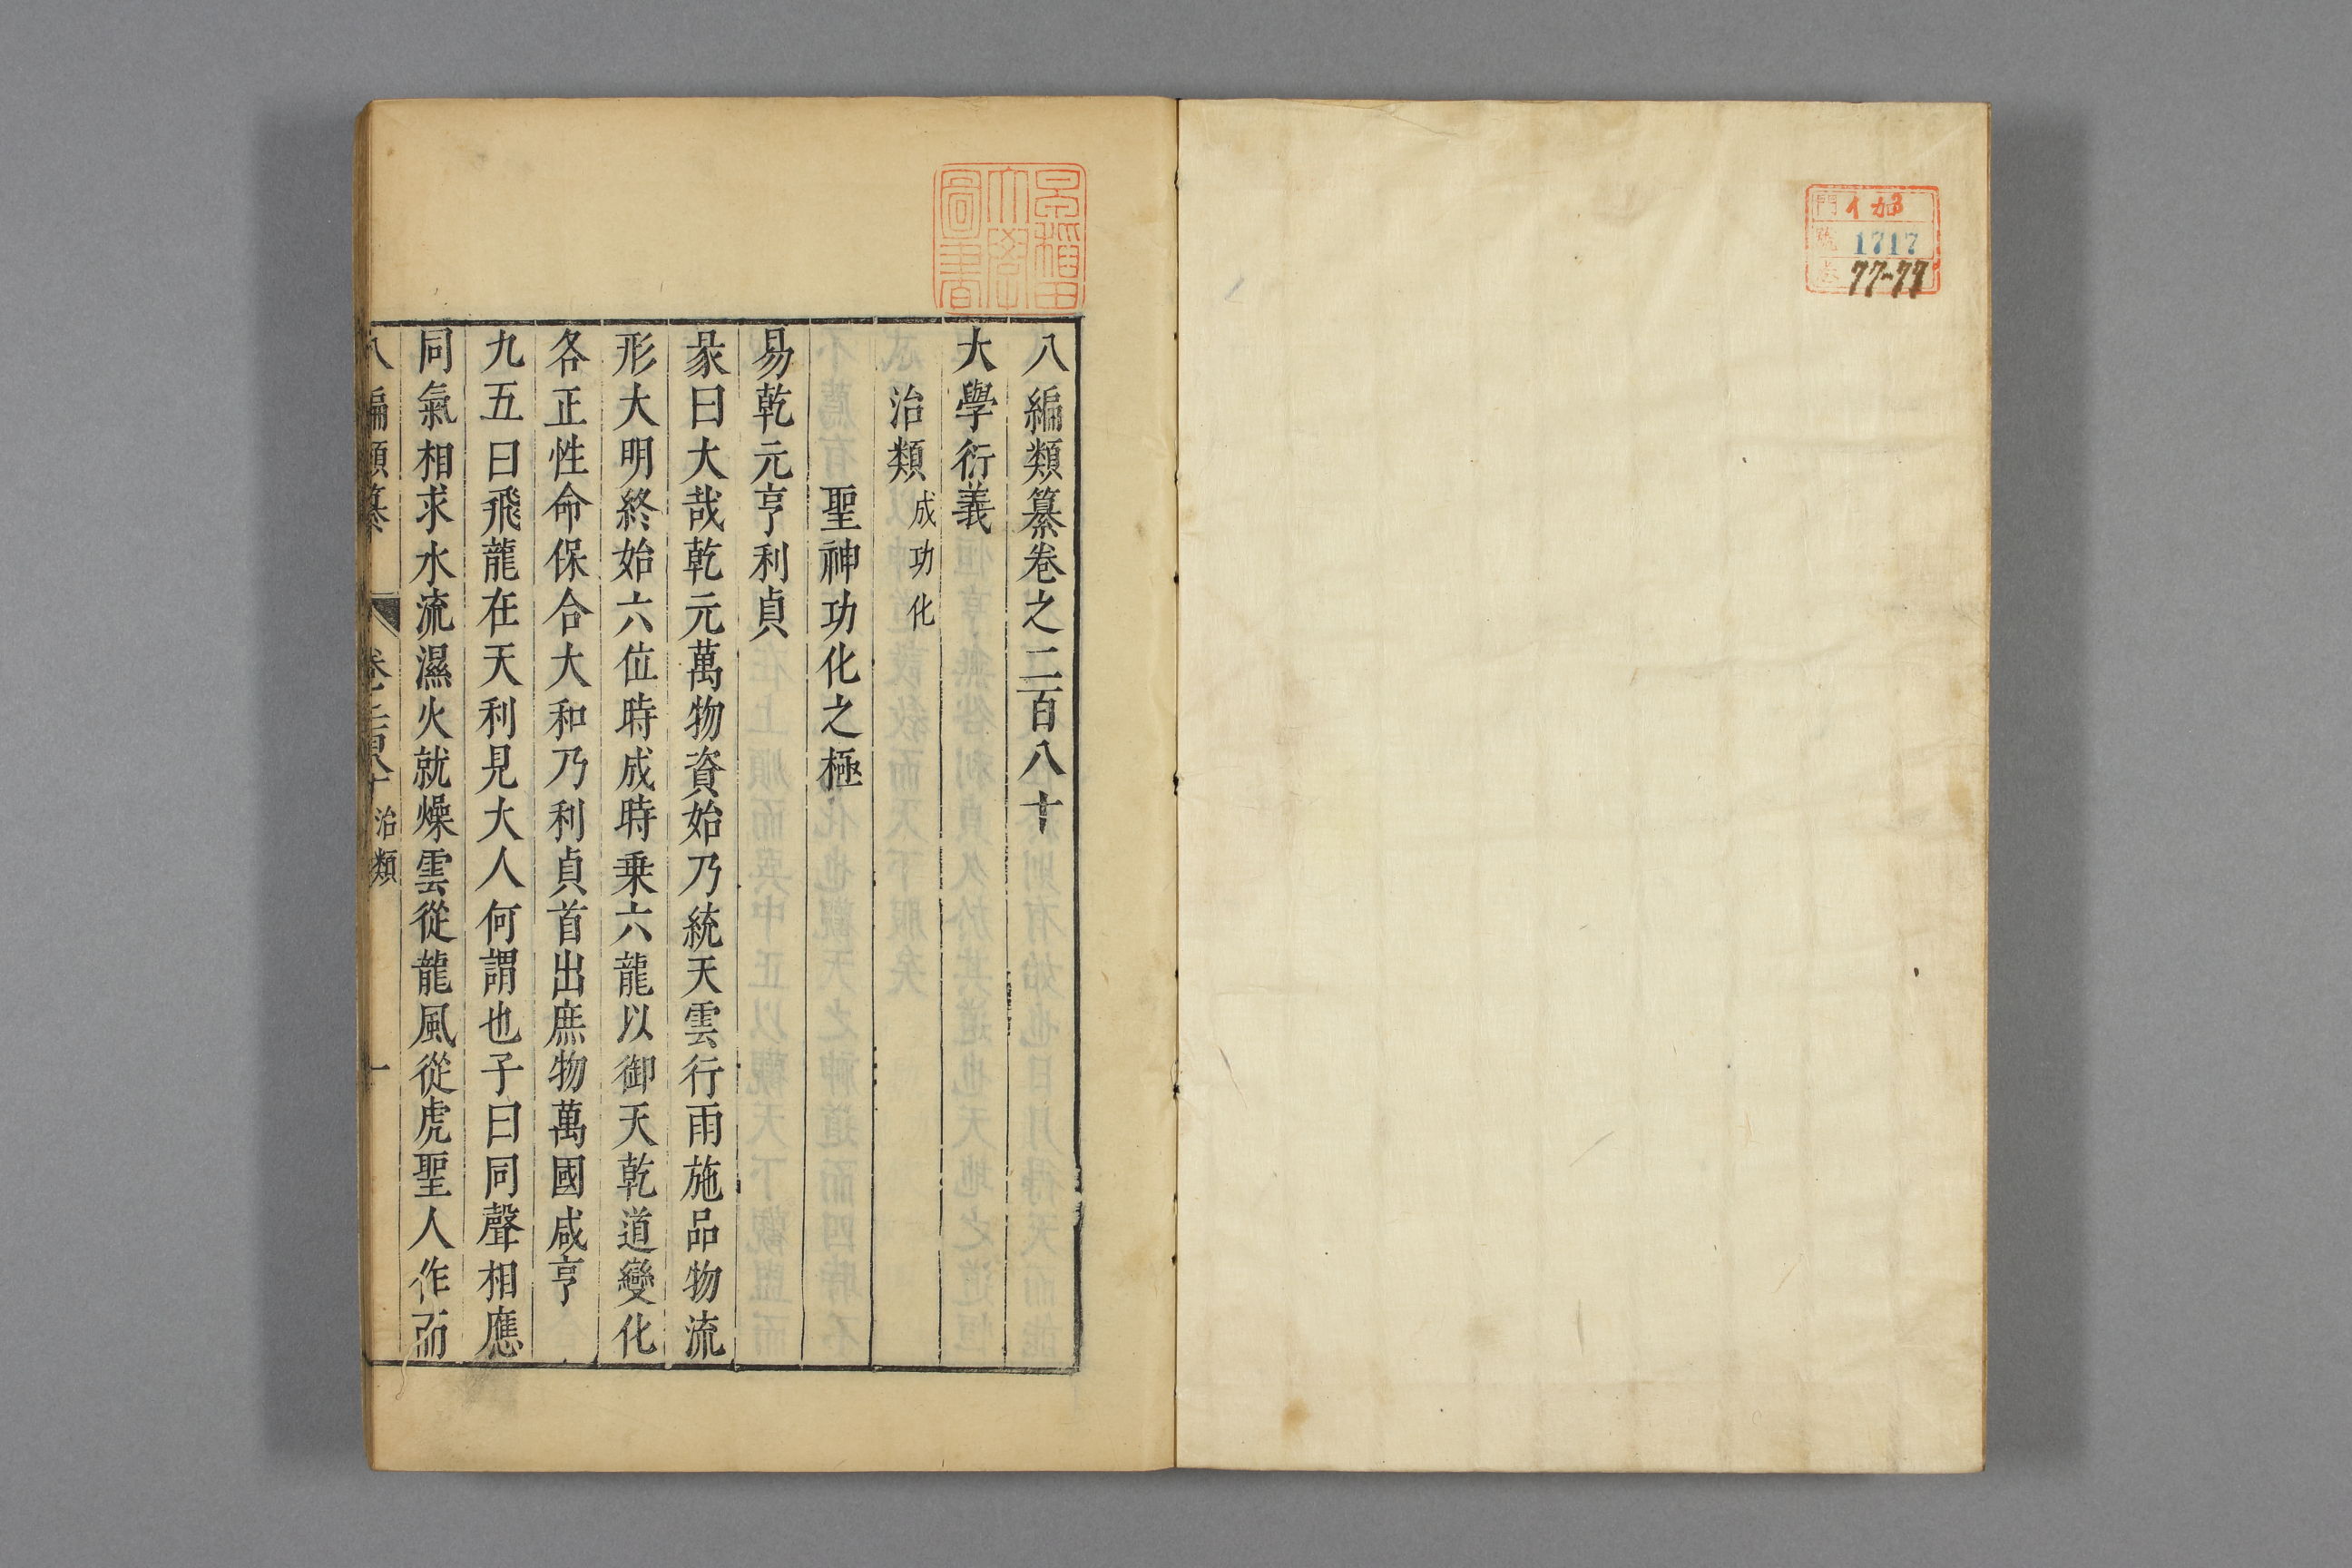 門 イ 加3
號 1717
77-77
早稲田
大學
圖書
八編類纂卷之二百八十
大學衍義
治類 成功化
聖神功化之極
易乾元亨利貞
彖曰大哉乾元萬物資始乃統天雲行雨施品物流
形大明終始六位時成時乗六龍以御天乾道變化
各正性命保合大和乃利貞首出庶物萬國咸亨
九五曰飛龍在天利見大人何謂也子曰同聲相應
同氣相求水流濕火就燥雲從龍風從虎聖人作而
八編類纂 卷之二百八十 治類 一